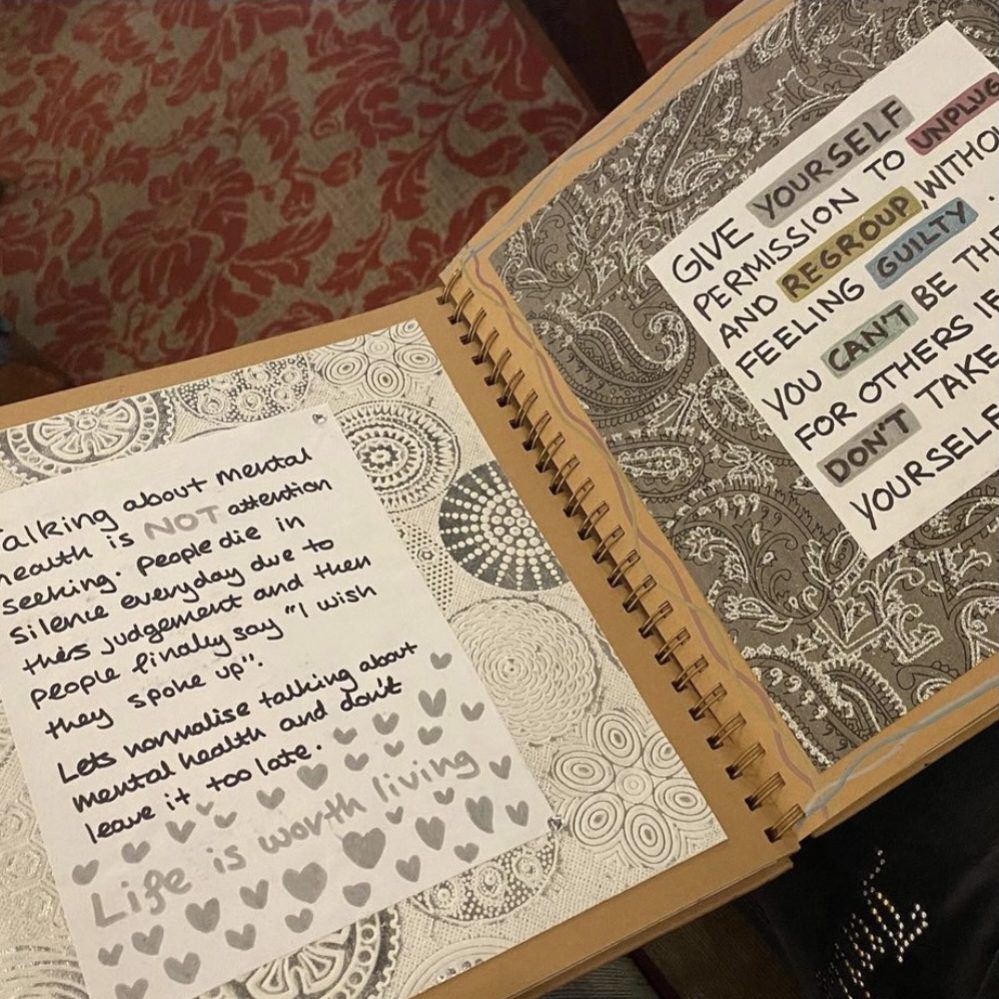 Talking about mental
health is NOT attention
seeking. People die in
silence everyday due to
this judgement and then
people finally say "I wish
they spoke up".
Lets normalise talking about
mental health and don't
leave it too late.
Life is worth living
GIVE YOURSELF
PERMISSION TO UNPLUG
AND REGROUP, WITHOU
FEELING GUILTY.
YOU CAN'T BE THE
FOR OTHERS IF
DON'T TAKE
YOURSELF